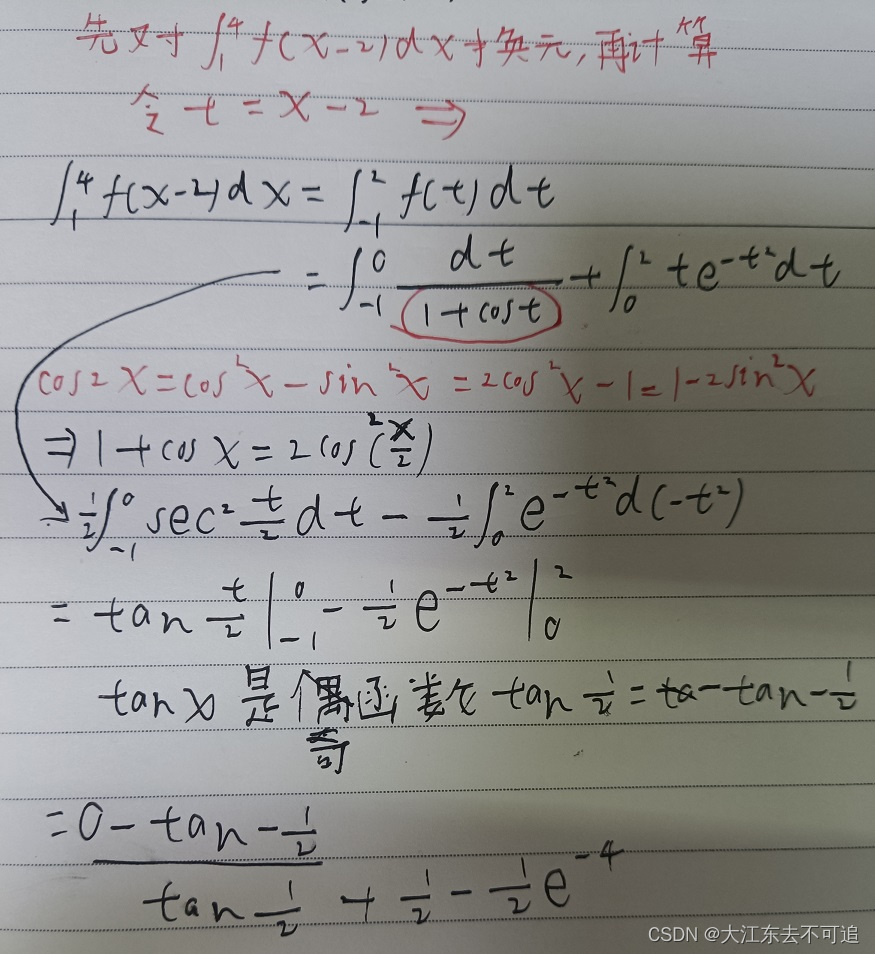 先对∫₁⁴ f(x-2)dx 换元,再计算
令 t = x - 2 ⇒
∫₁⁴ f(x-2)dx = ∫₋₁² f(t)dt
= ∫₋₁⁰ dt/(1+cost) + ∫₀² te^(-t²)dt
cos2x = cos²x - sin²x = 2cos²x - 1 = 1 - 2sin²x
⇒ 1 + cos x = 2cos²(x/2)
→ 1/2 ∫₋₁⁰ sec² t/2 dt - 1/2 ∫₀² e^(-t²) d(-t²)
= tan t/2 |₋₁⁰ - 1/2 e^(-t²) |₀²
tanx 是奇函数 tan 1/2 = -tan -1/2
= 0 - tan -1/2
tan 1/2 + 1/2 - 1/2 e^(-4)
CSDN @大江东去不可追